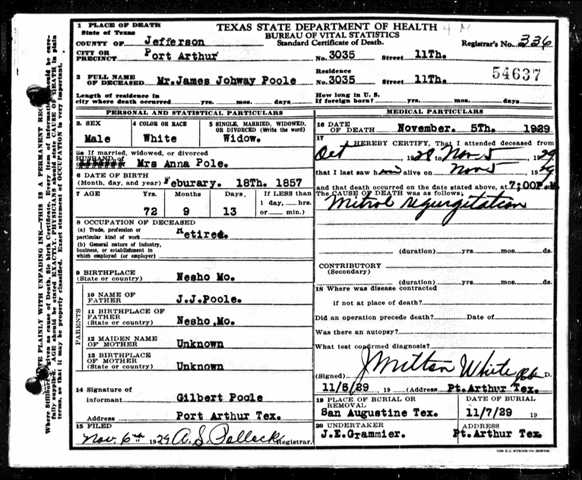 1 PLACE OF DEATH
State of Texas
TEXAS STATE DEPARTMENT OF HEALTH
BUREAU OF VITAL STATISTICS
Standard Certificate of Death.
COUNTY OF Jefferson
Registrar's No. 336
CITY OR PRECINCT Port Arthur No. 3035 Street 11Th.
2 FULL NAME OF DECEASED Mr.James Johway Poole Residence No. 3035 Street 11Th.
54637
Length of residence in city where death occurred yrs. mos. ds. How long in U. S. if foreign born? yrs. mos. ds.
PERSONAL AND STATISTICAL PARTICULARS
3. SEX
Male
4 COLOR OR RACE
White
5 SINGLE, MARRIED, WIDOWED, OR DIVORCED (Write the word)
Widow.
5a If married, widowed, or divorced
HUSBAND of
Mrs Anna Pole.
6 DATE OF BIRTH
(Month, day, and year) Feburary. 18Th. 1857
7 AGE Years Months Days If LESS than 1 day, hrs. or min.
72 9 13
8 OCCUPATION OF DECEASED
(a) Trade, profession or particular kind of work Retired.
(b) General nature of industry, business, or establishment in which employed (or employer)
9 BIRTHPLACE
(State or country) Nesho Mo.
PARENTS
10 NAME OF FATHER J.J.Poole.
11 BIRTHPLACE OF FATHER
(State or country) Nesho,Mo.
12 MAIDEN NAME OF MOTHER Unknown
13 BIRTHPLACE OF MOTHER
(State or country) Unknown
14 Signature of informant Gilbert Poole
Address Port Arthur Tex.
15 FILED
Nov. 6th 1929 A. S. Pollock Registrar.
MEDICAL PARTICULARS
16 DATE OF DEATH November. 5Th. 1929
17 I HEREBY CERTIFY, That I attended deceased from
Oct 28 Nov 5 1929
that I last saw him alive on Nov 5 1929
and that death occurred on the date stated above, at 7;00P.M.
The CAUSE OF DEATH was as follows:
Mitrol regurgitation
(duration) yrs. mos. ds.
CONTRIBUTORY
(Secondary)
(duration) yrs. mos. ds.
18 Where was disease contracted
if not at place of death?
Did an operation precede death? Date of
Was there an autopsy?
What test confirmed diagnosis?
(Signed) J Milton White M. D.
11/5/29 , 19 (Address Pt.Arthur Tex.
19 PLACE OF BURIAL OR REMOVAL
San Augustine Tex.
DATE OF BURIAL
11/7/29 19
20 UNDERTAKER
J.E.Grammier.
ADDRESS
Pt.Arthur Tex